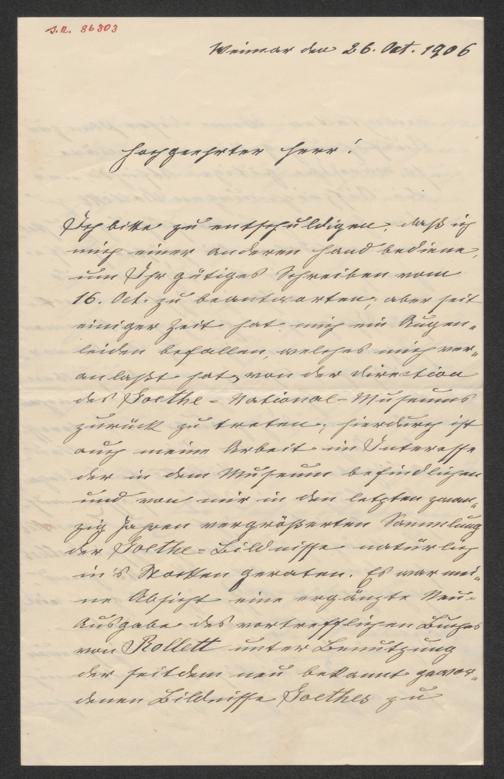 J.N. 86303
Weimar den 26. Oct. 1906
Hochgeehrter Herr!
Ich bitte zu entschuldigen, daß ich
mich einer anderen Hand bediene,
um Ihr gütiges Schreiben vom
16. Oct. zu beantworten, aber seit
einiger Zeit hat mich ein Augen-
leiden befallen, welches mich ver-
anlaßt hat, von der Direction
des Goethe-National-Museums
zurück zu treten; hierdurch ist
auch meine Arbeit im Interesse
der in dem Museum befindlichen
und von mir in den letzten zwan-
zig Jahren vergrößerten Sammlung
der Goethe-Bildnisse natürlich
in's Stocken geraten. Es war mei-
ne Absicht eine ergänzte Neu-
Ausgabe des vortrefflichen Buches
von Rollett unter Benutzung
der seitdem neu bekannt gewor-
denen Bildnisse Goethes zu